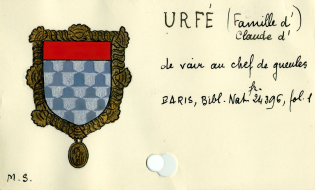 URFÉ (Famille d')
Claude d'
de vair au chef de gueules
PARIS, Bibl. Nat. fr. 24396, fol. 1
M.S.